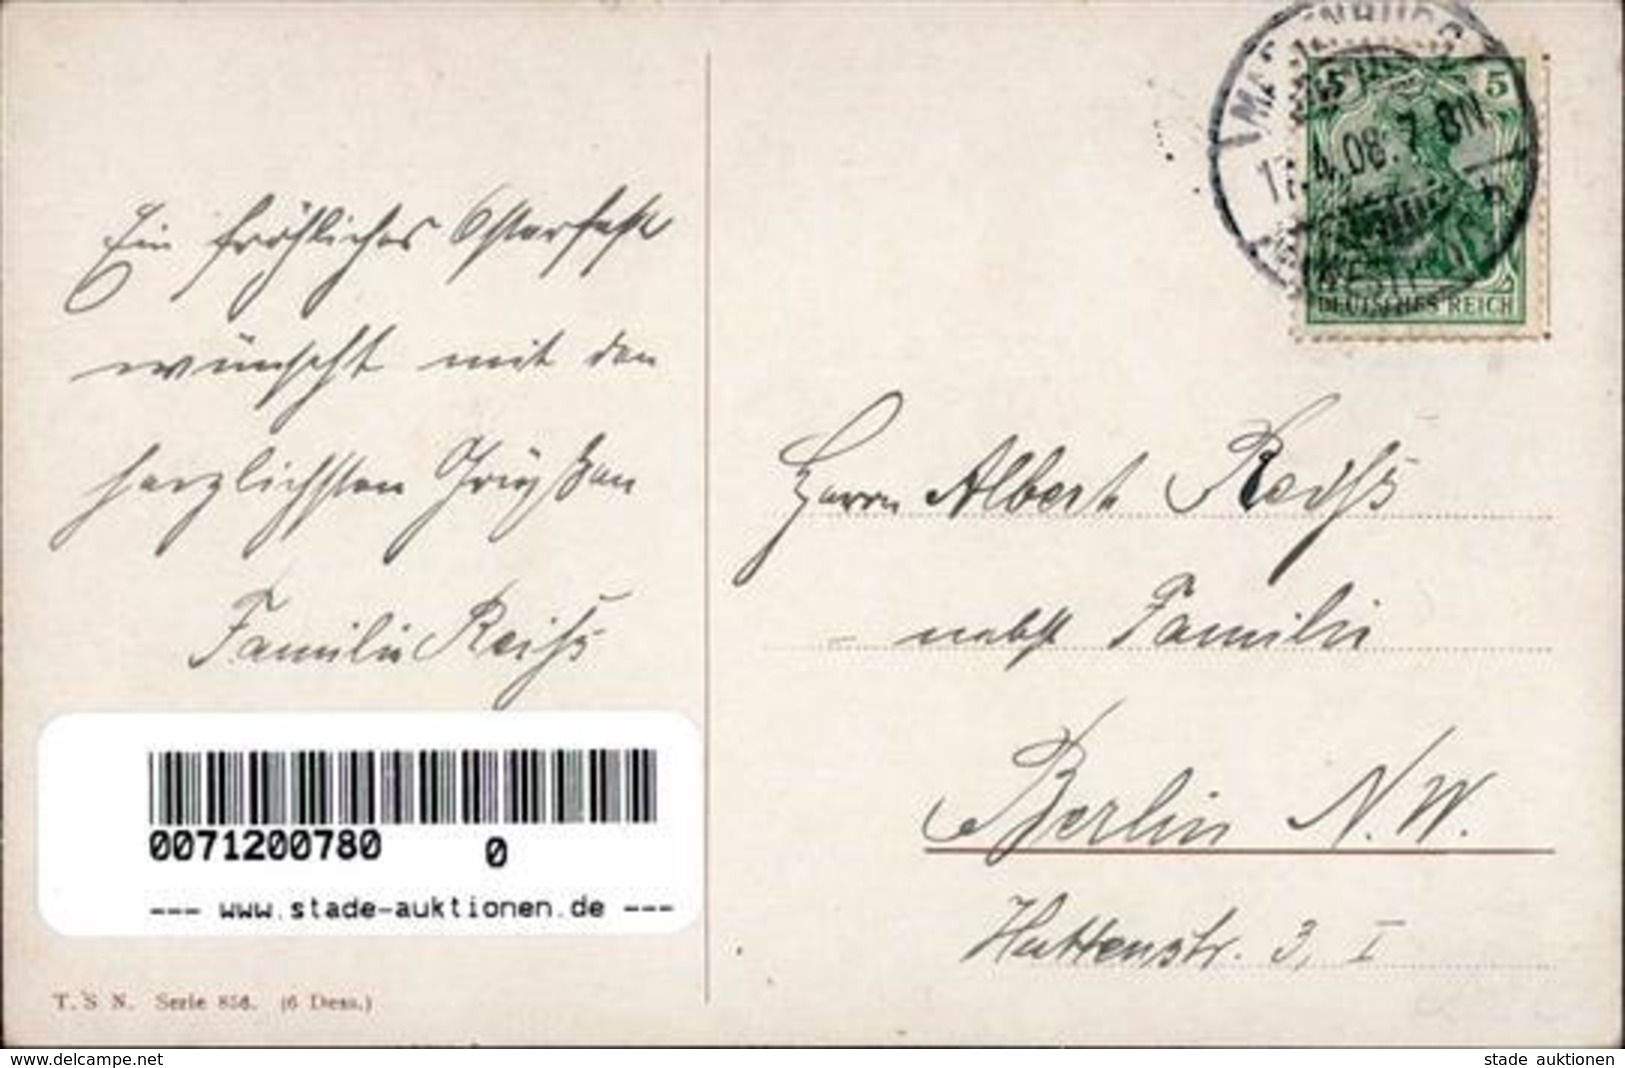 Ein fröhliches Osterfest
wünscht mit den
herzlichsten Grüßen
Familie Reiß
5
17.4.08. 7-8N.
h
DEUTSCHES REICH
Herrn Albert Reiß
nebst Familie
Berlin N.W.
Huttenstr. 3, I
0071200780 0
--- www.stade-auktionen.de ---
T. S. N. Serie 856. (6 Dess.)
www.delcampe.net
stade auktionen